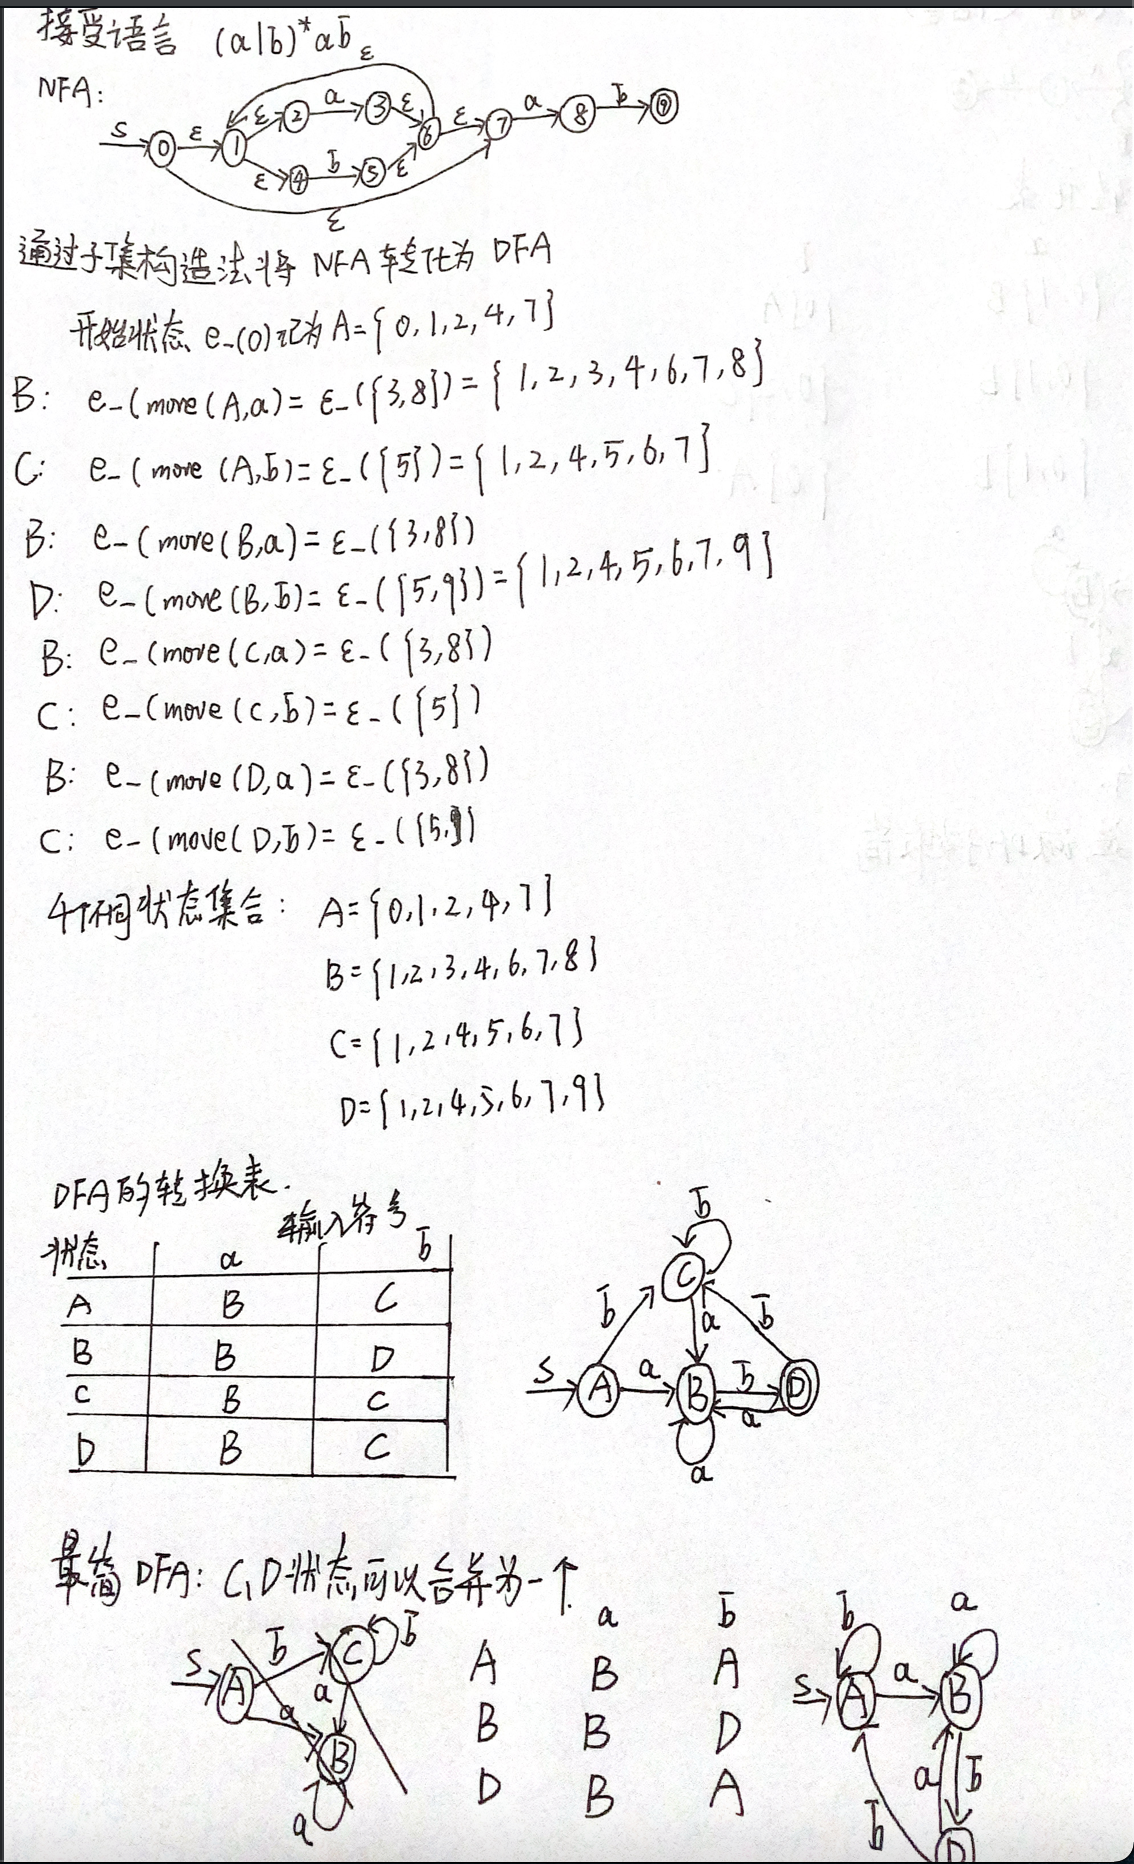 接受语言 (a|b)*ab
NFA:
ε
S 0 ε 1 ε 2 a 3 ε 6 ε 7 a 8 b 9
ε 4 b 5 ε
ε
通过子集构造法将 NFA 转化为 DFA
开始状态 e_(0)记为 A={0,1,2,4,7}
B: e_(move(A,a)=ε_({3,8})={1,2,3,4,6,7,8}
C: e_(move(A,b)=ε_({5})={1,2,4,5,6,7}
B: e_(move(B,a)=ε_({3,8})
D: e_(move(B,b)=ε_({5,9})={1,2,4,5,6,7,9}
B: e_(move(C,a)=ε_({3,8})
C: e_(move(C,b)=ε_({5})
B: e_(move(D,a)=ε_({3,8})
C: e_(move(D,b)=ε_({5})
4个不同状态集合: A={0,1,2,4,7}
B={1,2,3,4,6,7,8}
C={1,2,4,5,6,7}
D={1,2,4,5,6,7,9}
DFA的转换表.
输入符号
状态 a b
A B C
B B D
C B C
D B C
b
C
b a b
S A a B b D
a
a
最简 DFA: C,D状态可以合并为一个
S A b C b
a a
B
a
a b
A B A
B B D
D B A
b a
S A a B
a b
b D